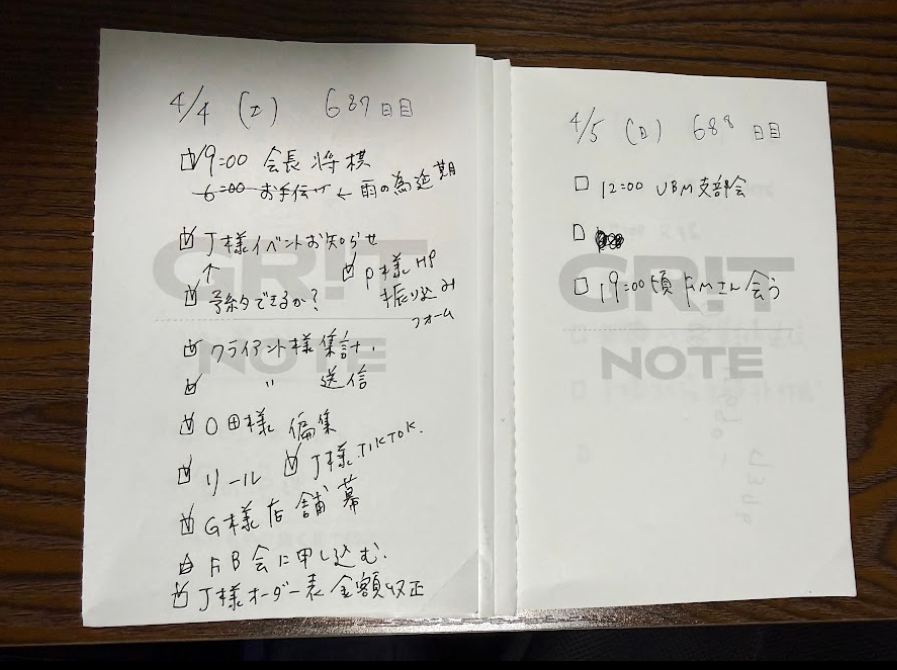 4/4 (土) 687日目
9:00 会長 将棋
6:00 お手伝い ← 雨の為延期
J様イベントお知らせ
↑
できるか?
P様HP
振り込み
フォーム
クライアント様 集計
〃 送信
O田様 編集
リール
J様TIKTOK.
G様店舗 幕
FB会に申し込む.
J様オーダー表 金額収正
GRIT
NOTE
4/5 (日) 688日目
12:00 UBM支部会
19:00頃 FMさん会う
GRIT
NOTE